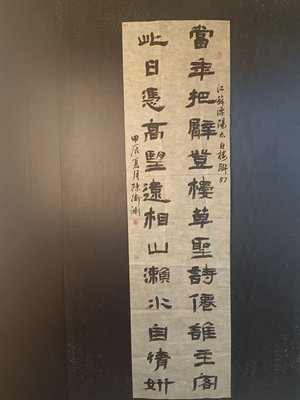 當年把臂登樓草聖詩僊誰主客
江蘇溧陽太白樓聯
此日憑高望遠相山瀨水自清妍
甲辰夏月陳衛